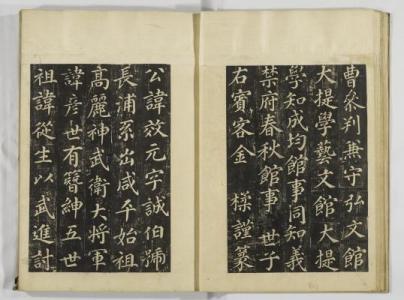 曹參判兼守弘文館
大提學藝文館大提
學知成均館事同知義
禁府春秋館事 世子
右賓客金 樣謹篆
公諱效元字誠伯號
長浦系出咸平始祖
高麗神武衛大將軍
諱彦世有簪紳五世
祖諱從生以武進討